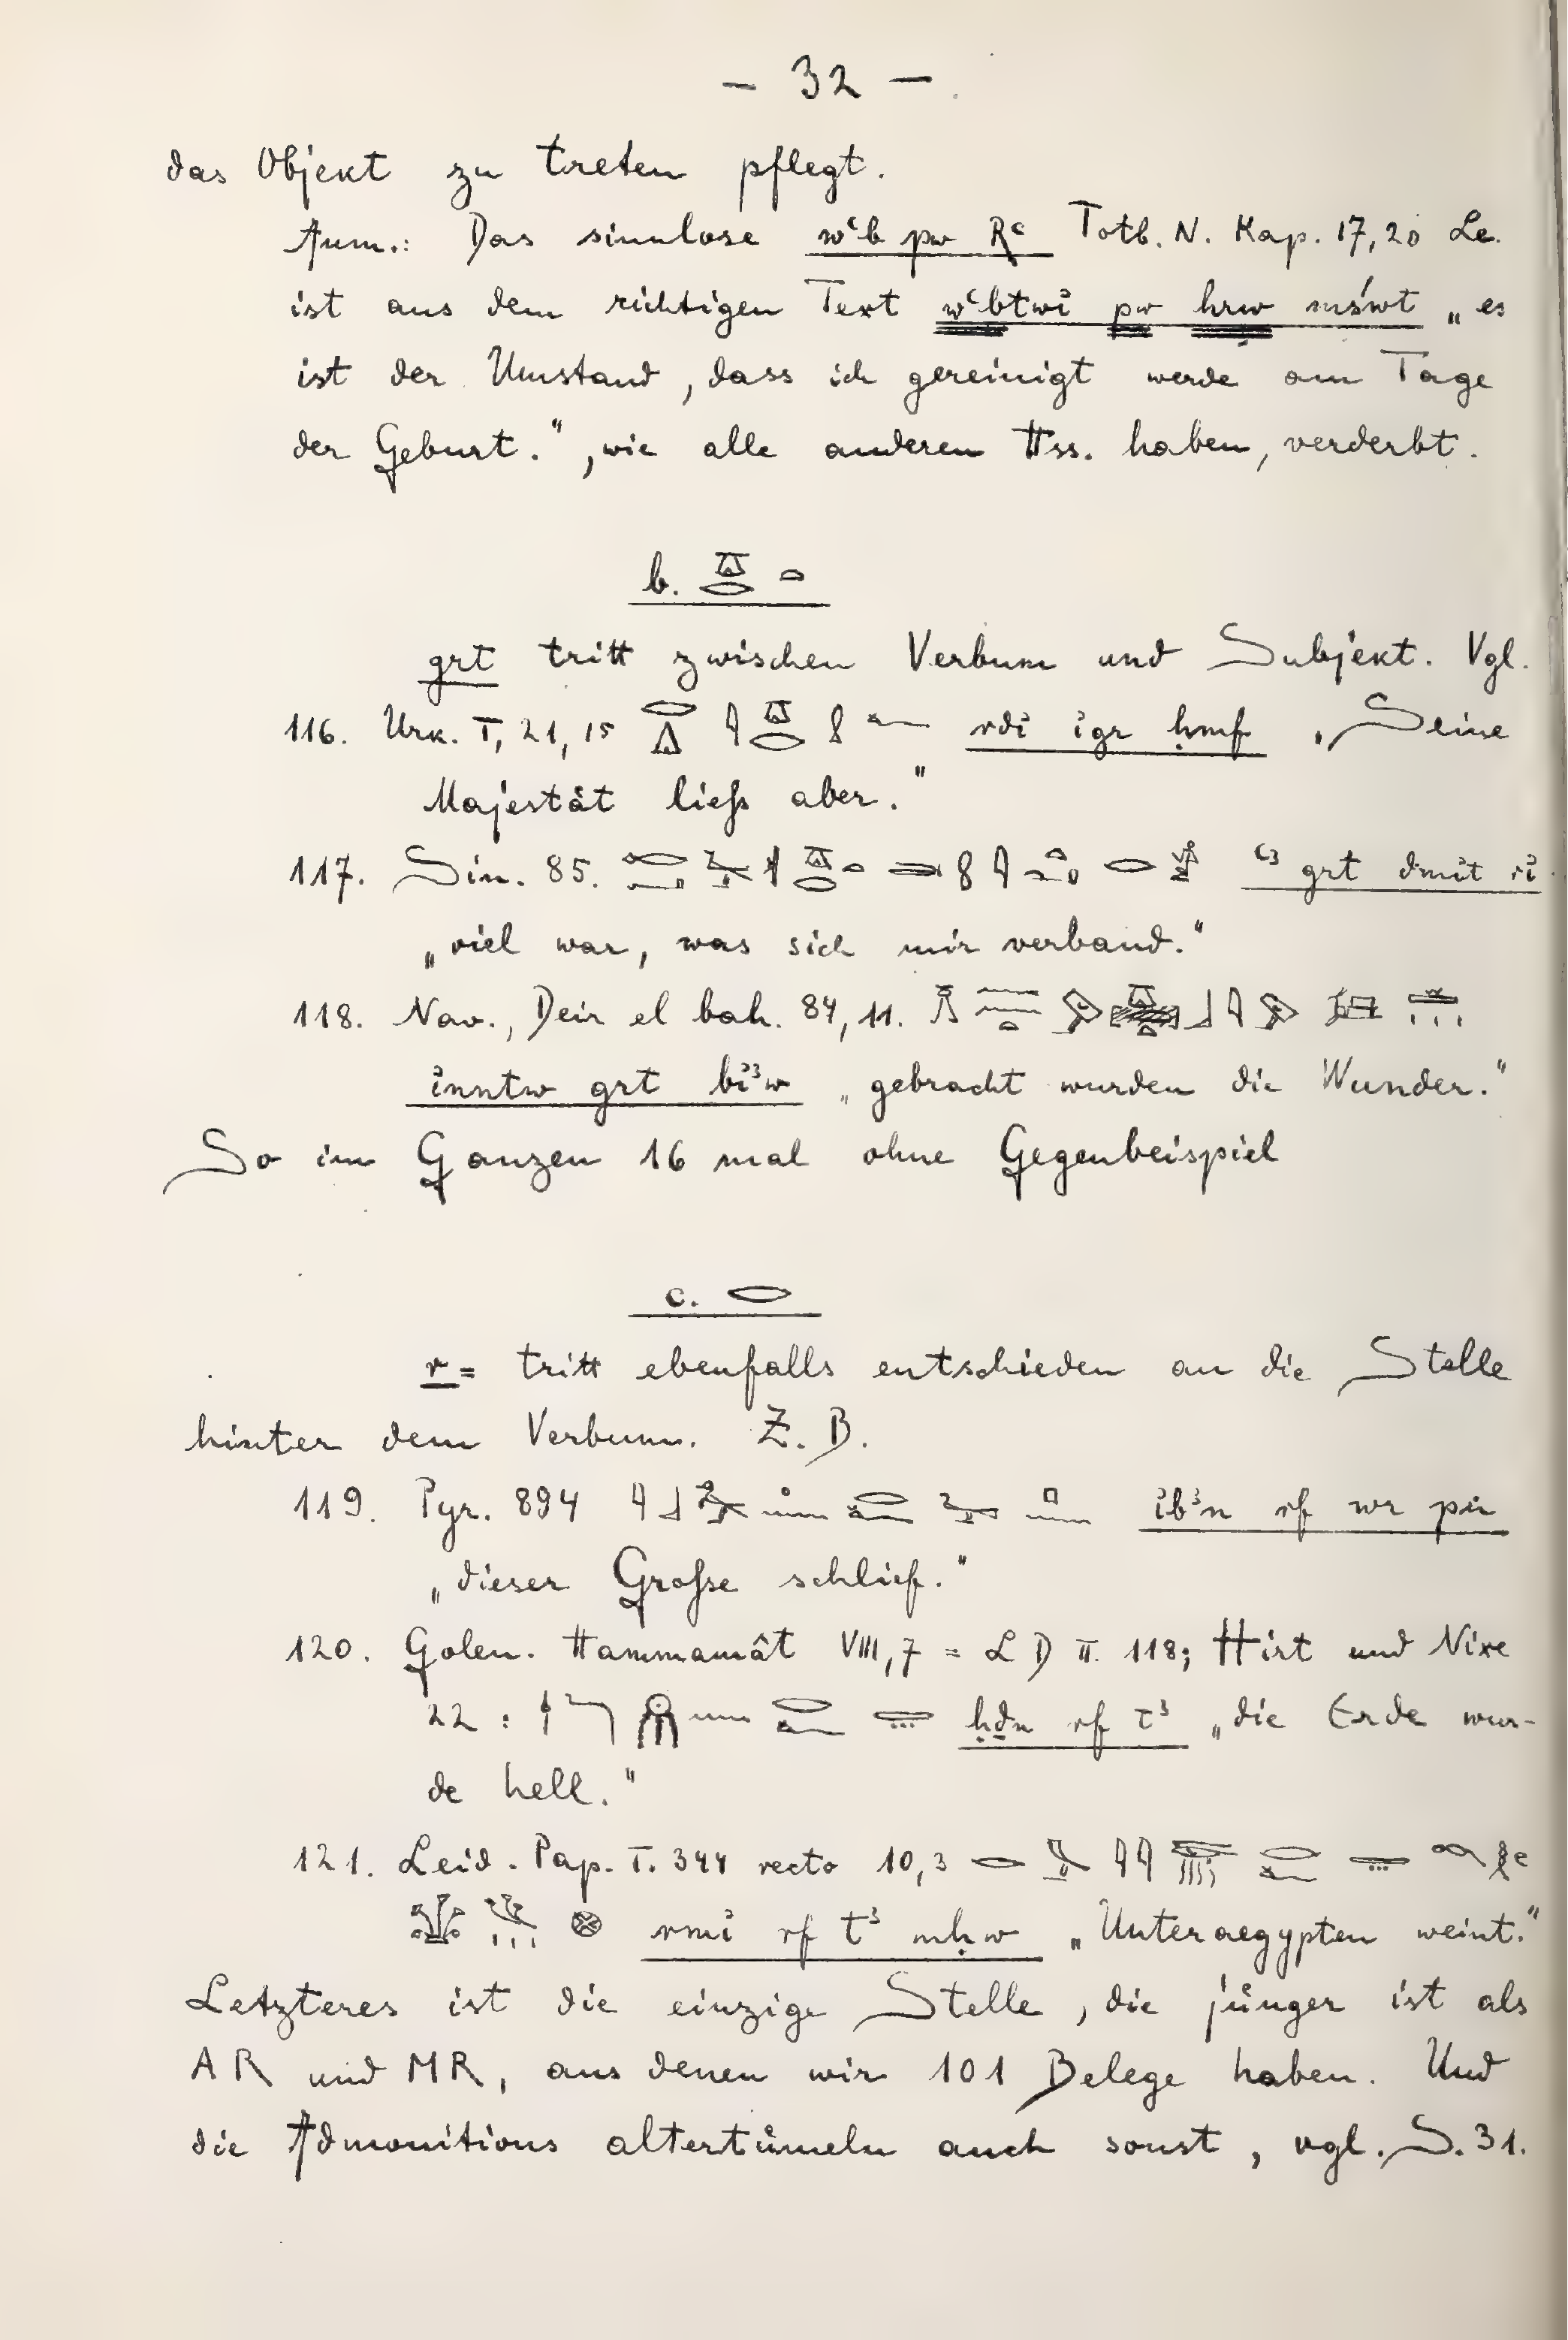 — 32 —
das Objekt zu treten pflegt.
Anm.: Das sinnlose wꜥb pw Rꜥ Totb. N. Kap. 17,20 Le.
ist aus dem richtigen Text wꜥbtwi̓ pw hrw mśwt „es
ist der Umstand, dass ich gereinigt werde am Tage
der Geburt.“, wie alle anderen Hss. haben, verderbt.
b.
grt tritt zwischen Verbum und Subjekt. Vgl.
116. Urk. I, 21, 15 rdi̓ i̓gr ḥmf „Seine
Majestät ließ aber.“
117. Sin. 85. ꜥꜣ grt dmi̓t ri̓
„viel war, was sich mir verband.“
118. Nav., Deir el bah. 84, 11.
i̓nntw grt bi̓ꜣw „gebracht wurden die Wunder.“
So im Ganzen 16 mal ohne Gegenbeispiel
c.
r= tritt ebenfalls entschieden an die Stelle
hinter dem Verbum. Z. B.
119. Pyr. 894 i̓bꜣn rf wr pn
„dieser Große schlief.“
120. Golen. Hammamât VIII, 7 = L D II. 118; Hirt und Nixe
22 : ḥḏn rf tꜣ „die Erde wur-
de hell.“
121. Leid. Pap. I. 344 recto 10,3
rmi̓ rf tꜣ mḥw „Unteraegypten weint.“
Letzteres ist die einzige Stelle, die jünger ist als
AR und MR, aus denen wir 101 Belege haben. Und
die Admonitions altertümeln auch sonst, vgl. S. 31.